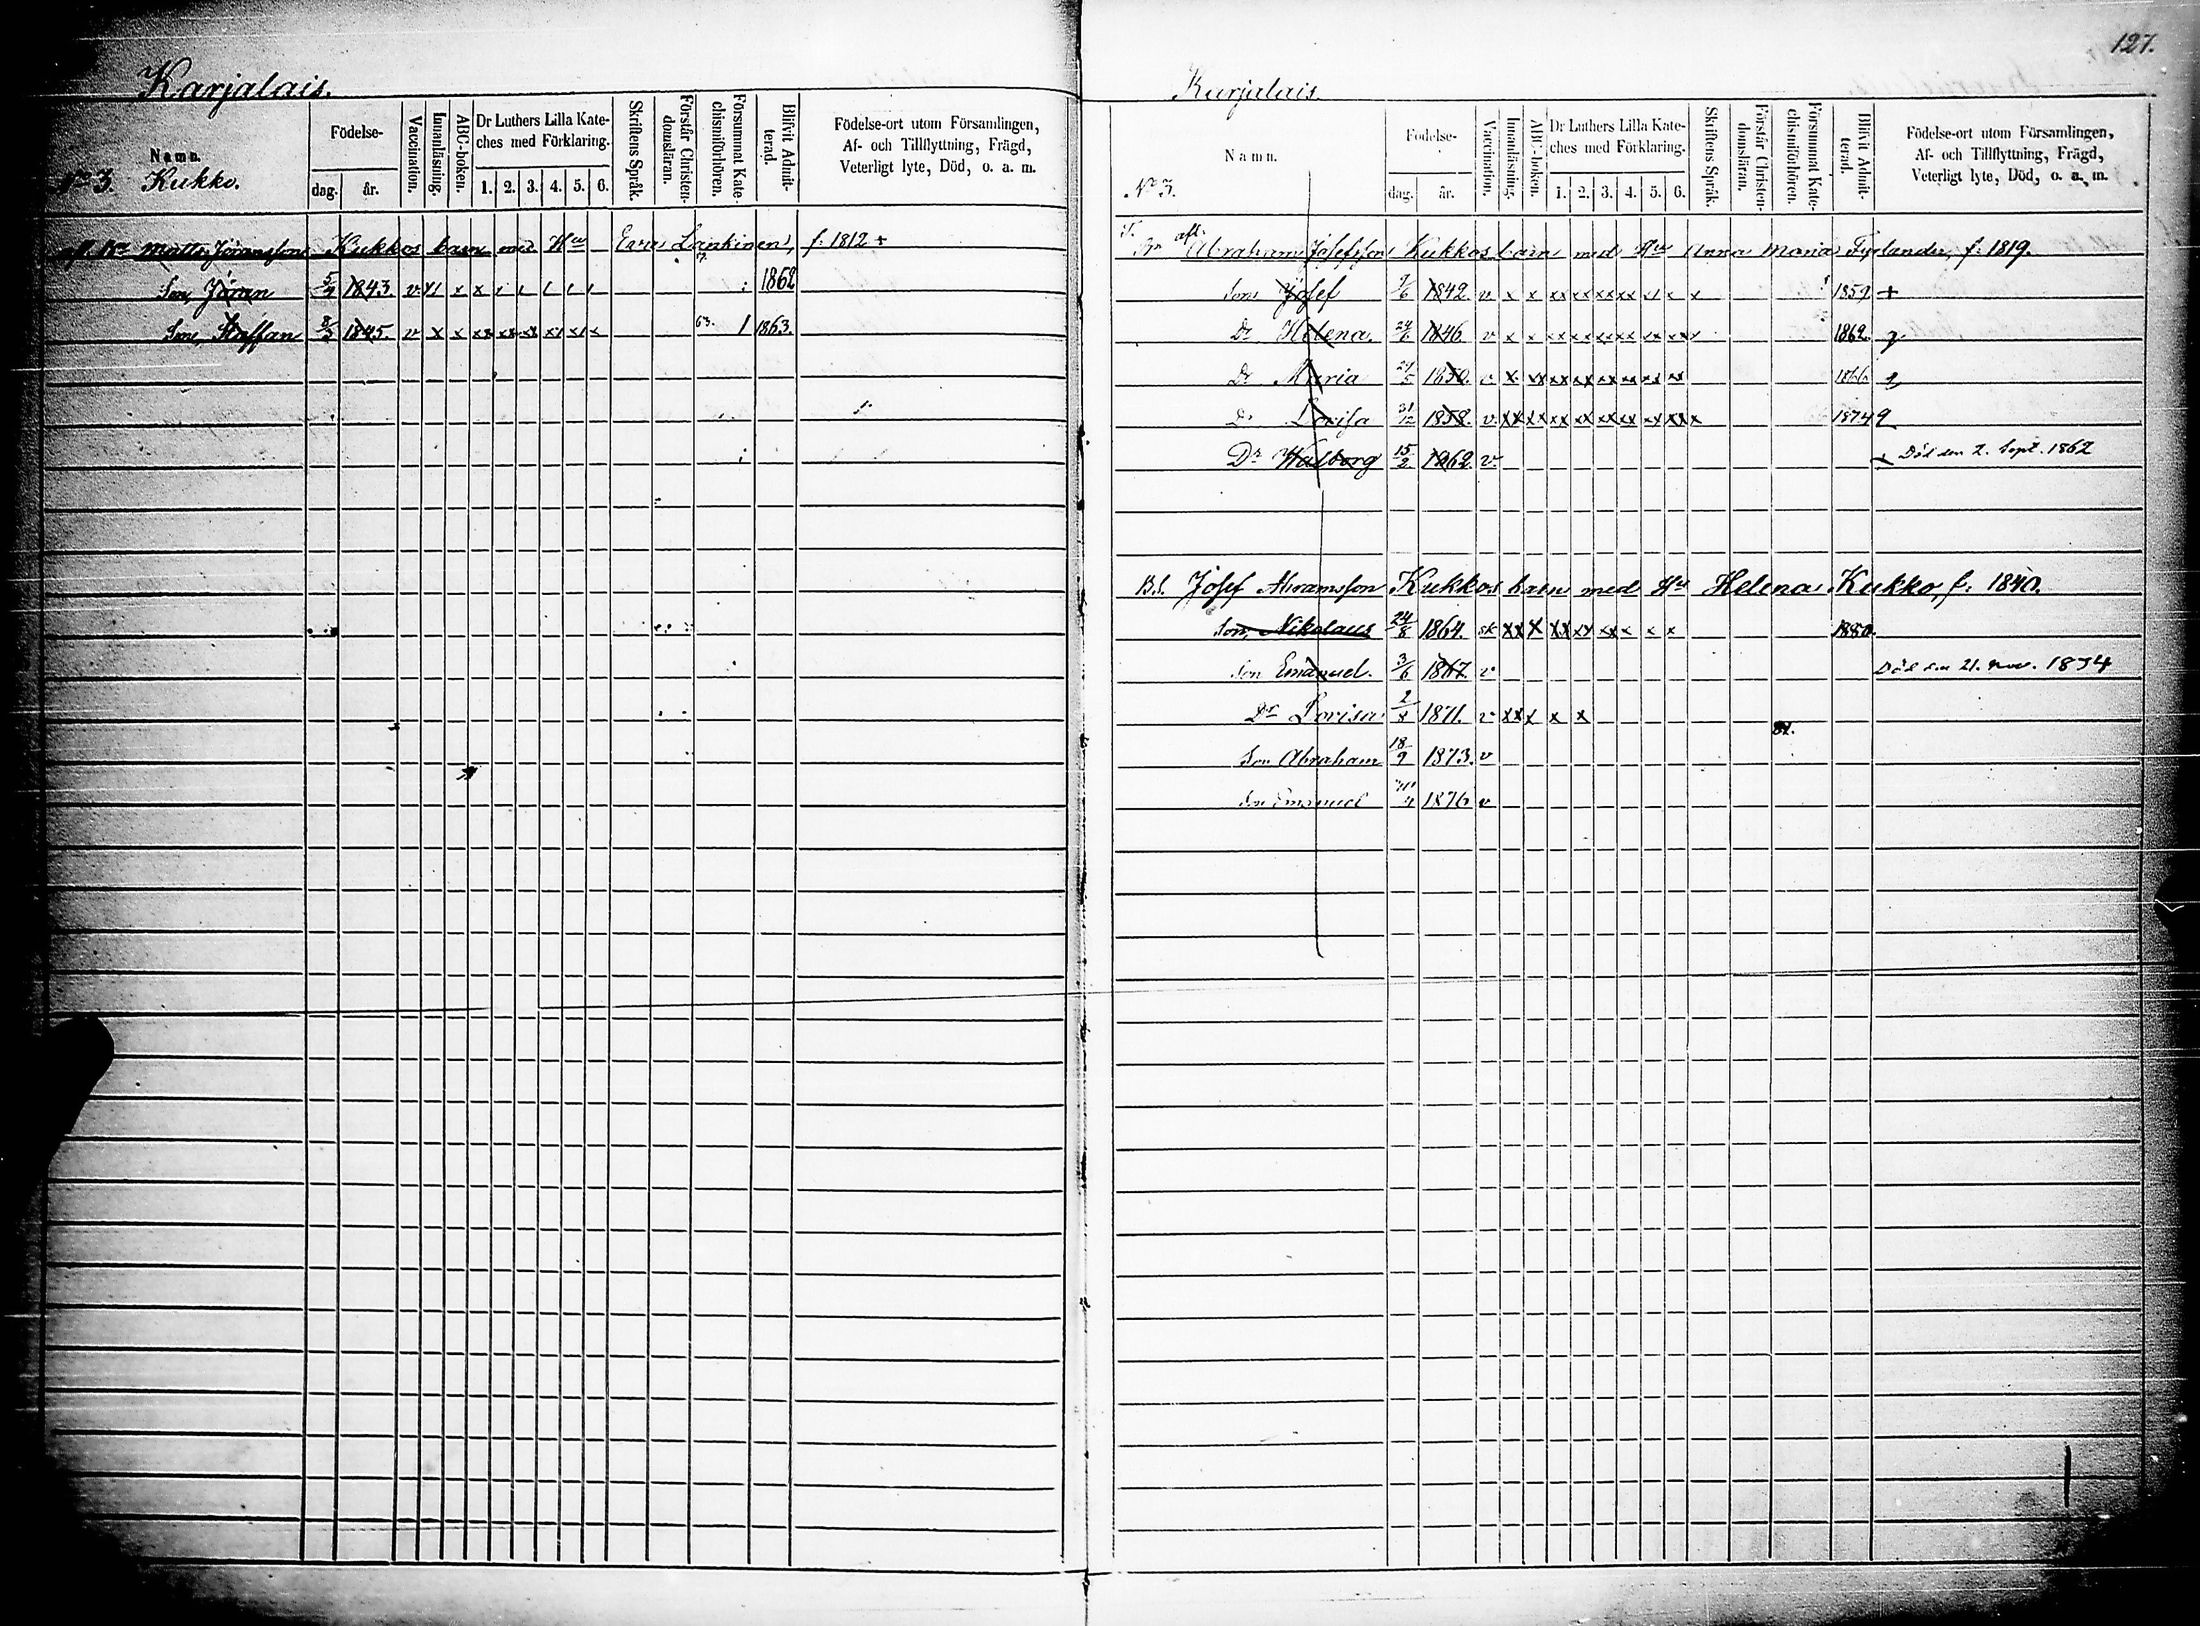 127.
Karjalais.
Namn.
No 3. Kukko.
Födelse-
dag. år.
Vaccination.
Innanläsning.
ABC-boken.
Dr Luthers Lilla Kate-
ches med Förklaring.
1. 2. 3. 4. 5. 6.
Skriftens Språk.
Förstår Christen-
domsläran.
Försummat Kate-
chismiförhören.
Blifvit Admit-
terad.
Födelse-ort utom Församlingen,
Af- och Tillflyttning, Frägd,
Veterligt lyte, Död, o. a. m.
afl. Matts Göransson Kukkos barn med Hu Eva Lankinen, f. 1812 +
Son, Jöran 5/4 1843. v. x x x 1862
Son, Staffan 8/3 1845. v x x xx xx xx xx xx x 63. 1 1863.
Karjalais
Namn.
No 3.
Födelse-
dag. år.
Vaccination.
Innanläsning.
ABC-boken.
Dr Luthers Lilla Kate-
ches med Förklaring.
1. 2. 3. 4. 5. 6.
Skriftens Språk.
Förstår Christen-
domsläran.
Försummat Kate-
chismiförhören.
Blifvit Admit-
terad.
Födelse-ort utom Församlingen,
Af- och Tillflyttning, Frägd,
Veterligt lyte, Död, o. a. m.
afl. Abraham Josefsson Kukkos barn med Hu Anna Maria f. 1819.
Son Josef 1842. v x x xx xx xx xx xx x x 1859 +
Dr Helena. 1846. v x x xx xx xx xx xx xx x 1862. g
Dr Maria 1850. v x xx xx xx xx xx xx xx 1866
Dr Lovisa 31/12 1858. v. xx xx xx xx xx xx xx xx x 1874 g
Dr Walborg 15/2 1862. v. + Död den 2. Sept. 1862
Bs. Josef Abramsson Kukkos barn med Hu Helena Kukko, f. 1840.
Son, Nikolaus 24/8 1864. sk xx x xx xx xx x x x 1880.
Son Emanuel. 3/6 1867. v Död den 21. nov. 1874
Dr Lovisa 2/8 1871. v xx x x x
Son Abraham 18/9 1873. v
Son Emanuel 1876 v